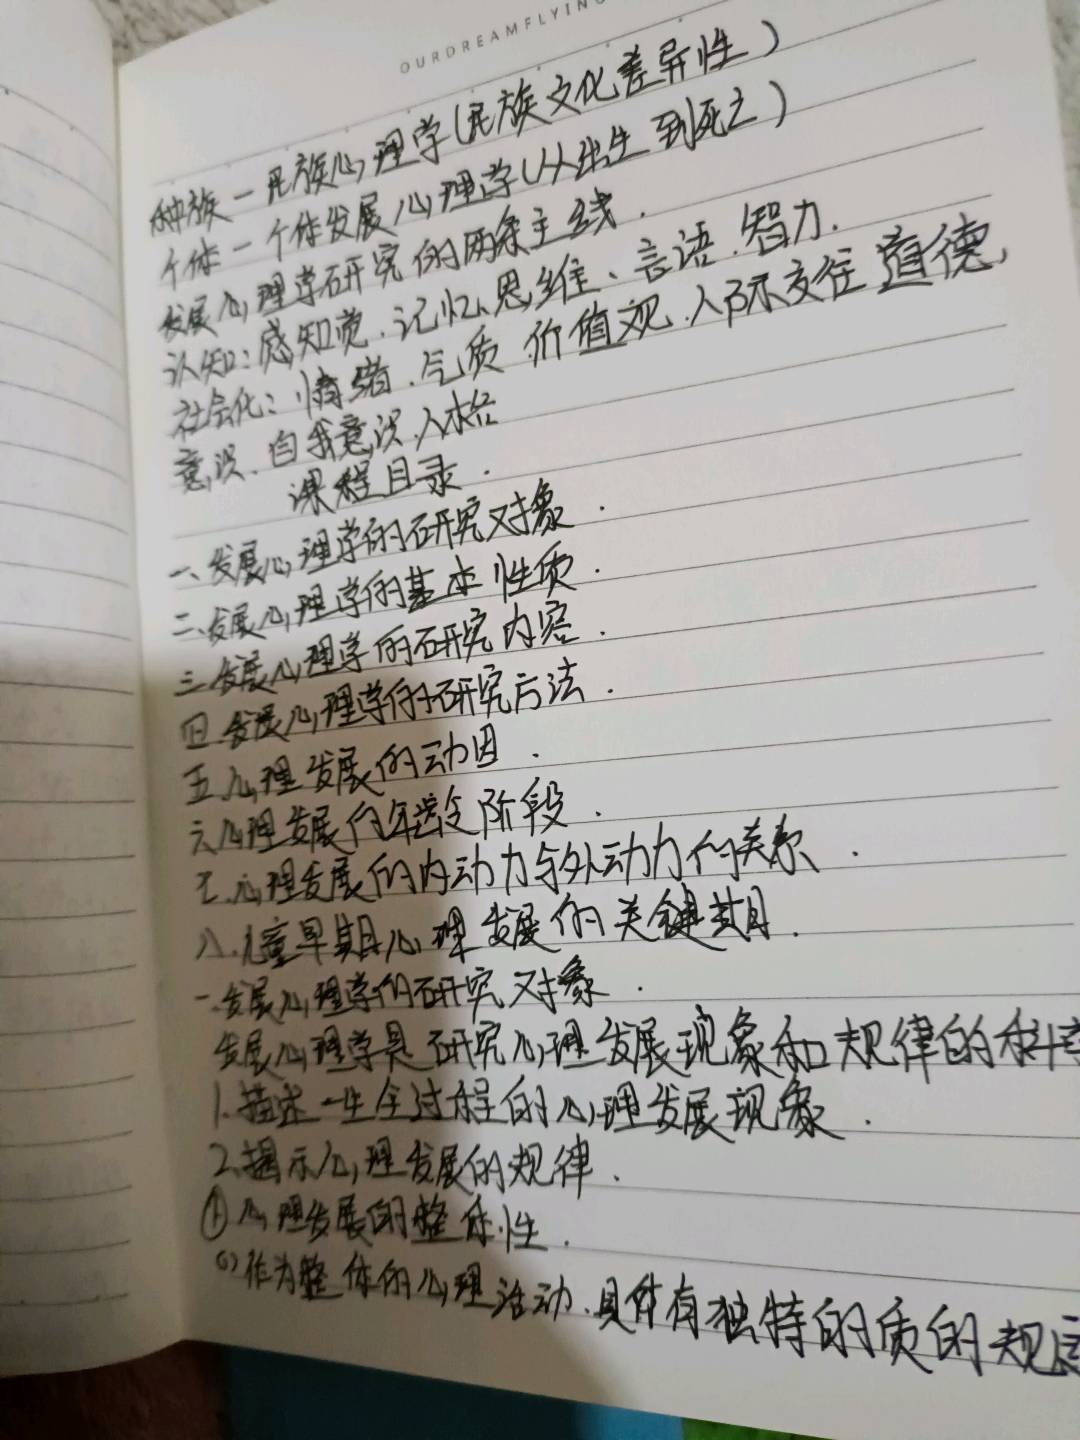 OURDREAMFLYING
种族一民族心理学(民族文化差异性)
个体一个体发展心理学(从出生到死亡)
发展心理学研究的两条主线.
认知:感知觉.记忆、思维、言语.智力.
社会化:情绪.气质 价值观.人际交往 道德
意识.自我意识.人格
课程目录.
一、发展心理学的研究对象.
二、发展心理学的基本性质.
三.发展心理学的研究内容.
四.发展心理学的研究方法.
五心理发展的动因.
六心理发展的年龄阶段.
七.心理发展的内动力与外动力的关系.
八.儿童早期心理发展的关键期.
一.发展心理学的研究对象.
发展心理学是研究心理发展现象和规律的科学
1.描述一生全过程的心理发展现象.
2.揭示心理发展的规律.
①心理发展的整体性.
(1)作为整体的心理活动.具体有独特的质的规定